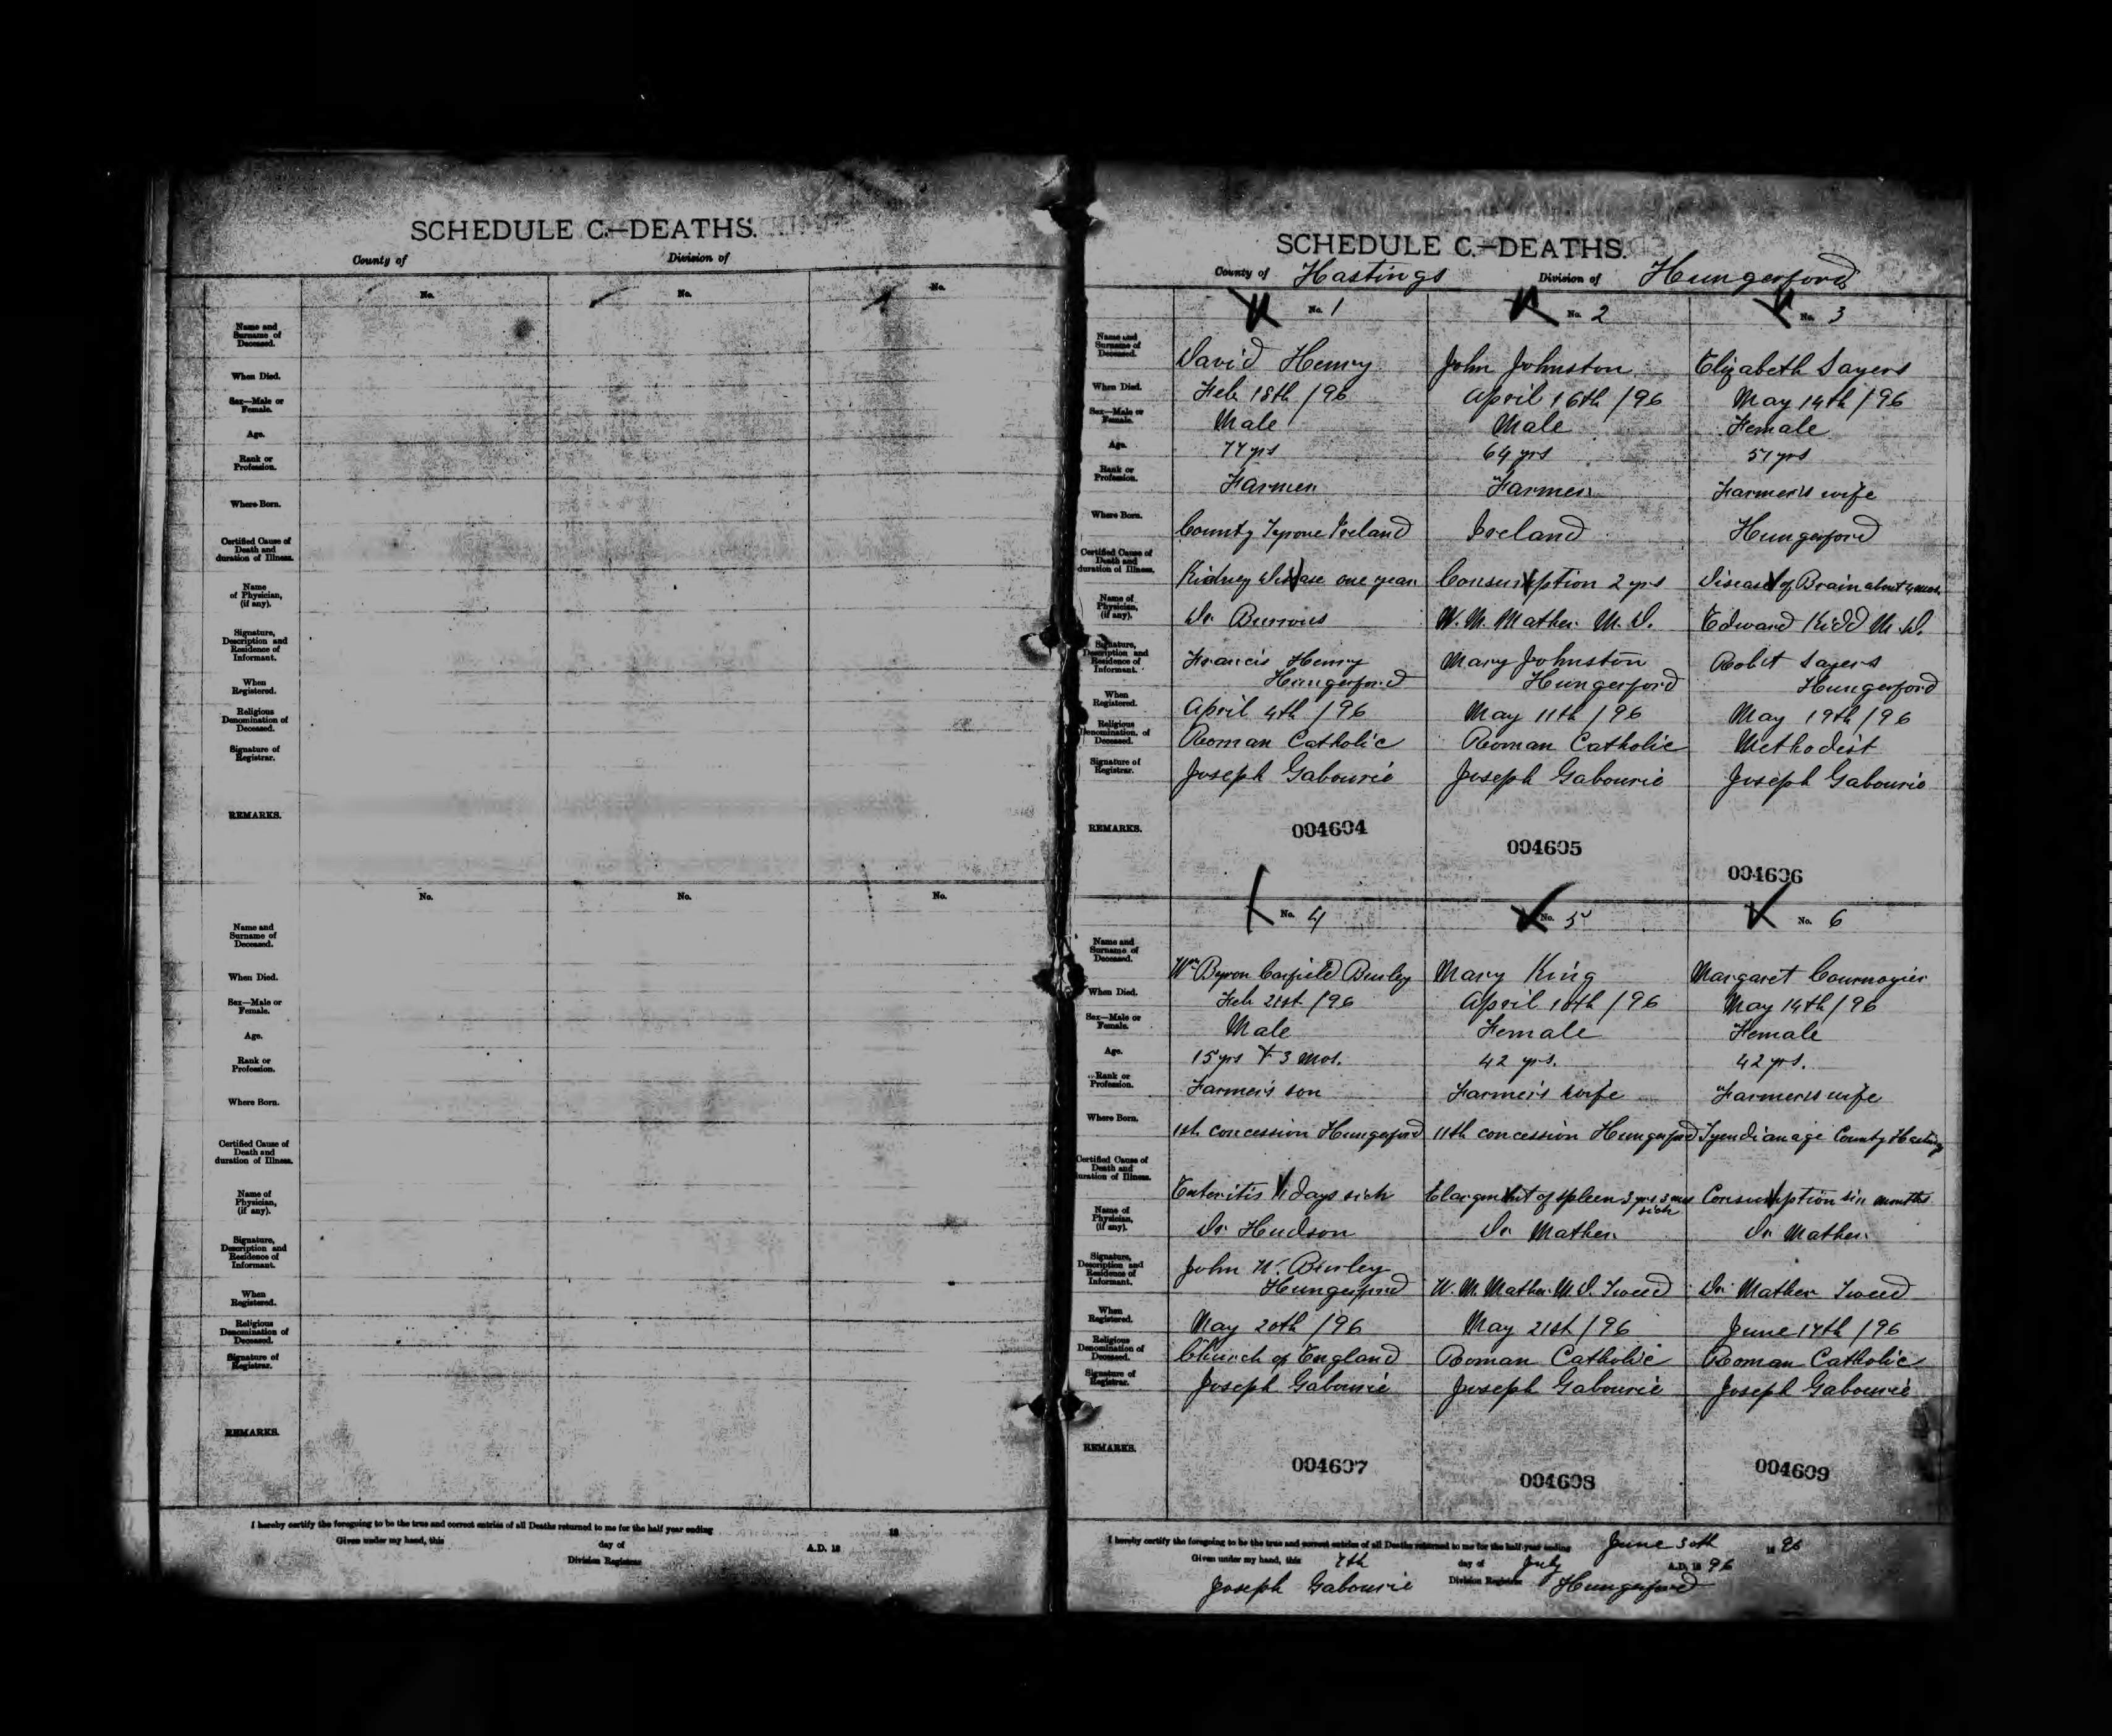 SCHEDULE C.—DEATHS.
County of Division of
No. No. No.
Name and Surname of Deceased.
When Died.
Sex—Male or Female.
Age.
Rank or Profession.
Where Born.
Certified Cause of Death and duration of Illness.
Name of Physician, (if any).
Signature, Description and Residence of Informant.
When Registered.
Religious Denomination of Deceased.
Signature of Registrar.
REMARKS.
No. No. No.
Name and Surname of Deceased.
When Died.
Sex—Male or Female.
Age.
Rank or Profession.
Where Born.
Certified Cause of Death and duration of Illness.
Name of Physician, (if any).
Signature, Description and Residence of Informant.
When Registered.
Religious Denomination of Deceased.
Signature of Registrar.
REMARKS.
I hereby certify the foregoing to be the true and correct entries of all Deaths returned to me for the half year ending 18
Given under my hand, this day of A.D. 18
Division Registrar
SCHEDULE C.—DEATHS.
County of Hastings Division of Hungerford
No. 1 No. 2 No. 3
Name and Surname of Deceased. David Henry John Johnston Elizabeth Sayers
When Died. Feb 18th /96 April 16th /96 May 14th /96
Sex—Male or Female. Male Male Female
Age. 77 yrs 64 yrs 57 yrs
Rank or Profession. Farmer Farmer Farmer's wife
Where Born. County Tyrone Ireland Ireland Hungerford
Certified Cause of Death and duration of Illness. Kidney disease one year Consumption 2 yrs Disease of Brain about 4 mos.
Name of Physician, (if any). Dr. Burrows W. M. Mather M. D. Edward Kidd M. D.
Signature, Description and Residence of Informant. Francis Henry Mary Johnston Robt Sayers
Hungerford Hungerford Hungerford
When Registered. April 4th /96 May 11th /96 May 19th /96
Religious Denomination of Deceased. Roman Catholic Roman Catholic Methodist
Signature of Registrar. Joseph Gabourie Joseph Gabourie Joseph Gabourie
REMARKS. 004604 004605 004606
No. 4 No. 5 No. 6
Name and Surname of Deceased. Wm Byron Garfield Burley Mary King Margaret Cournoyier
When Died. Feb 21st /96 April 10th /96 May 14th /96
Sex—Male or Female. Male Female Female
Age. 15 yrs & 3 mos. 42 yrs. 42 yrs.
Rank or Profession. Farmer's son Farmer's wife Farmer's wife
Where Born. 1st concession Hungerford 11th concession Hungerford Tyendianage County Hastings
Certified Cause of Death and duration of Illness. Enteritis days sick Elargment of spleen 3 yrs 3 mos sick Consumption six months
Name of Physician, (if any). Dr. Hudson Dr. Mather Dr. Mather
Signature, Description and Residence of Informant. John W. Burley
Hungerford W. M. Mather M. D. Tweed Dr. Mather Tweed
When Registered. May 20th /96 May 21st /96 June 17th /96
Religious Denomination of Deceased. Church of England Roman Catholic Roman Catholic
Signature of Registrar. Joseph Gabourie Joseph Gabourie Joseph Gabourie
REMARKS. 004607 004608 004609
I hereby certify the foregoing to be the true and correct entries of all Deaths returned to me for the half year ending June 30th 1896
Given under my hand, this 7th day of July A.D. 1896
Joseph Gabourie Division Registrar Hungerford